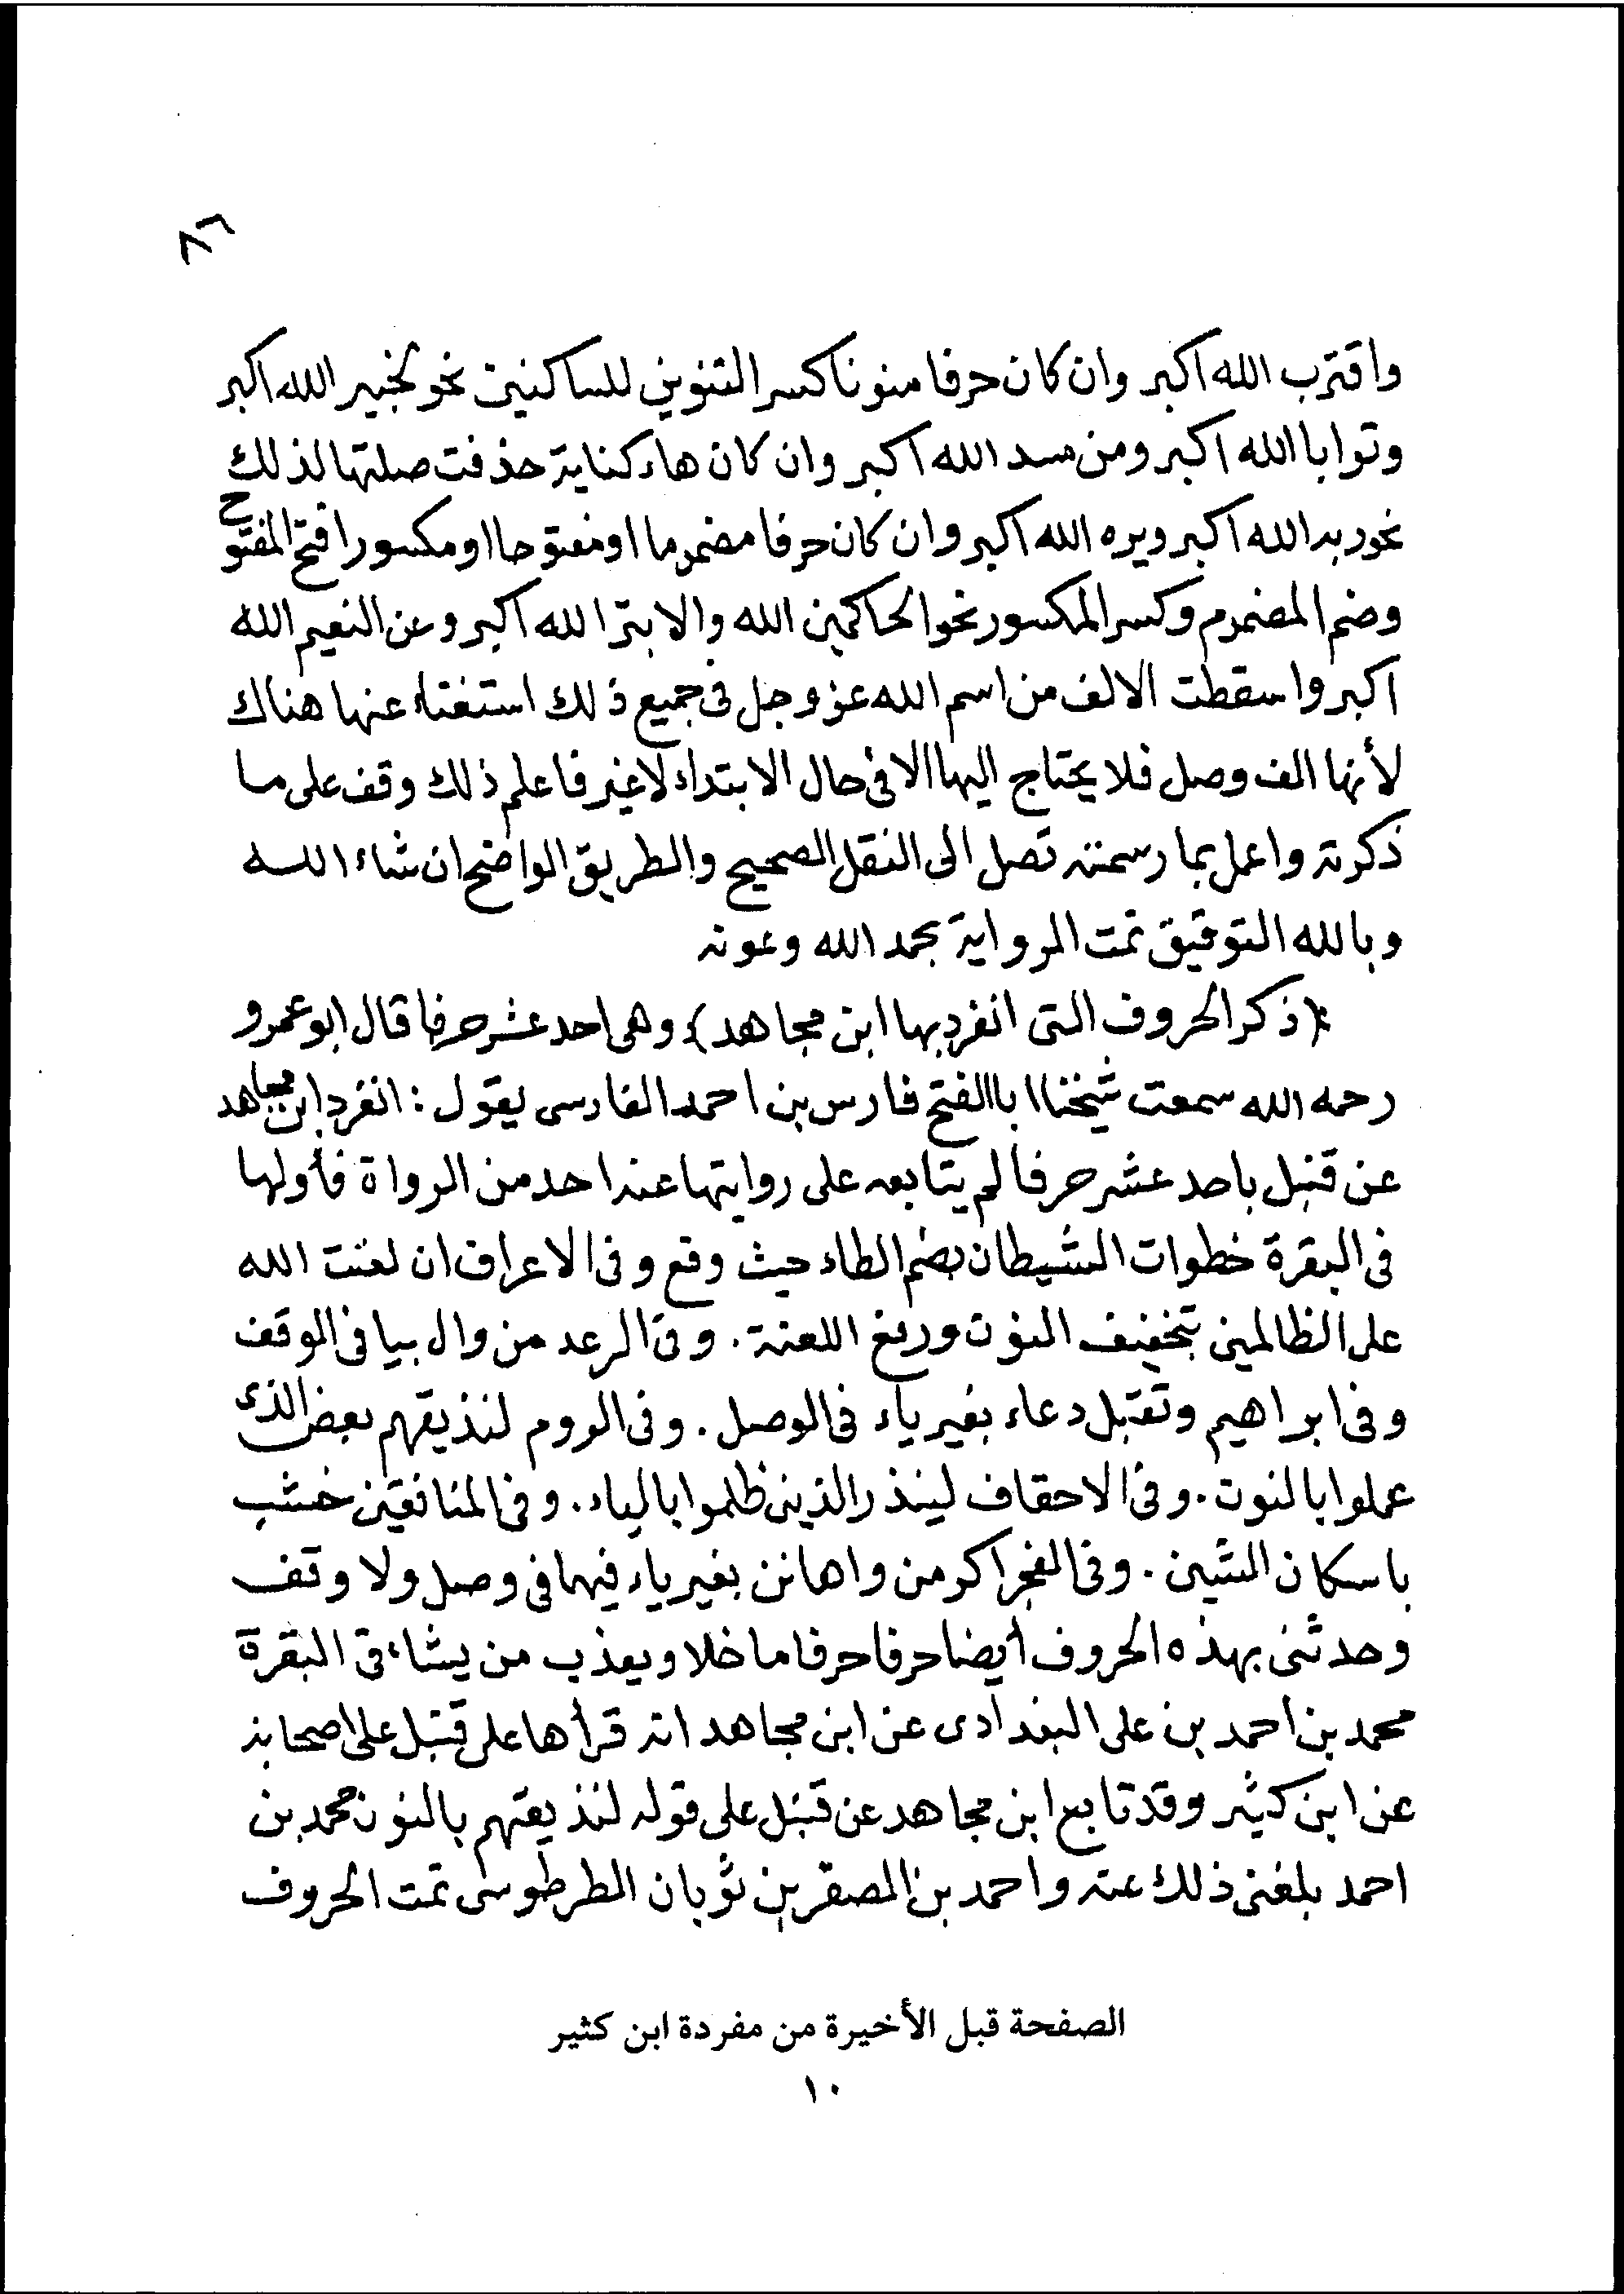 ٨٦
واقترب الله اكبر وان كان حرفا منونا كسر التنوين للساكنين نحو لخبير الله اكبر
وتوابا الله اكبر ومن مسد الله اكبر وان كان هاء كناية حذفت صلتها لذلك
نحو ربه الله اكبر ويره الله اكبر وان كان حرفا مضموما او مفتوحا او مكسورا فتح المفتوح
وضم المضموم وكسر المكسور نحو الحاكمين الله والابتر الله اكبر وعن النعيم الله
اكبر واسقطت الالف من اسم الله عز وجل فى جميع ذلك استغناء عنها هناك
لأنها الف وصل فلا يحتاج اليها الا فى حال الابتداء لا غير فاعلم ذلك وقف على ما
ذكرته واعمل بما رسمته تصل الى النقل الصحيح والطريق الواضح ان شاء الله
وبالله التوفيق تمت الرواية بحمد الله وعونه
(ذكر الحروف التى انفرد بها ابن مجاهد) وهى احد عشر حرفا قال ابو عمرو
رحمه الله سمعت شيخنا ابا الفتح فارس بن احمد الفارسى يقول : انفرد ابن مجاهد
عن قنبل باحد عشر حرفا لم يتابعه على روايتها عنه احد من الرواة فأولها
فى البقرة خطوات الشيطان بضم الطاء حيث وقع وفى الاعراف ان لعنت الله
على الظالمين بتخفيف النون ورفع اللعنة . وفى الرعد من وال بيا فى الوقف
وفى ابراهيم وتقبل دعاء بغير ياء فى الوصل . وفى الروم لنذيقهم بعض الذى
عملوا بالنون . وفى الاحقاف لينذر الذين ظلموا بالياء . وفى المنافقين خشب
باسكان الشين . وفى الفجر اكرمن واهانن بغير ياء فيهما فى وصل ولا وقف
وحدثنى بهذه الحروف أيضا حرفا حرفا ما خلا ويعذب من يشاء فى البقرة
محمد بن احمد بن على البغدادى عن ابن مجاهد انه قرأها على قنبل على اصحابه
عن ابن كثير وقد تابع ابن مجاهد عن قنبل على قوله لنذيقهم بالنون محمد بن
احمد بلغنى ذلك عنه واحمد بن الصقر بن ثوبان الطرطوسى تمت الحروف
الصفحة قبل الأخيرة من مفردة ابن كثير
١٠